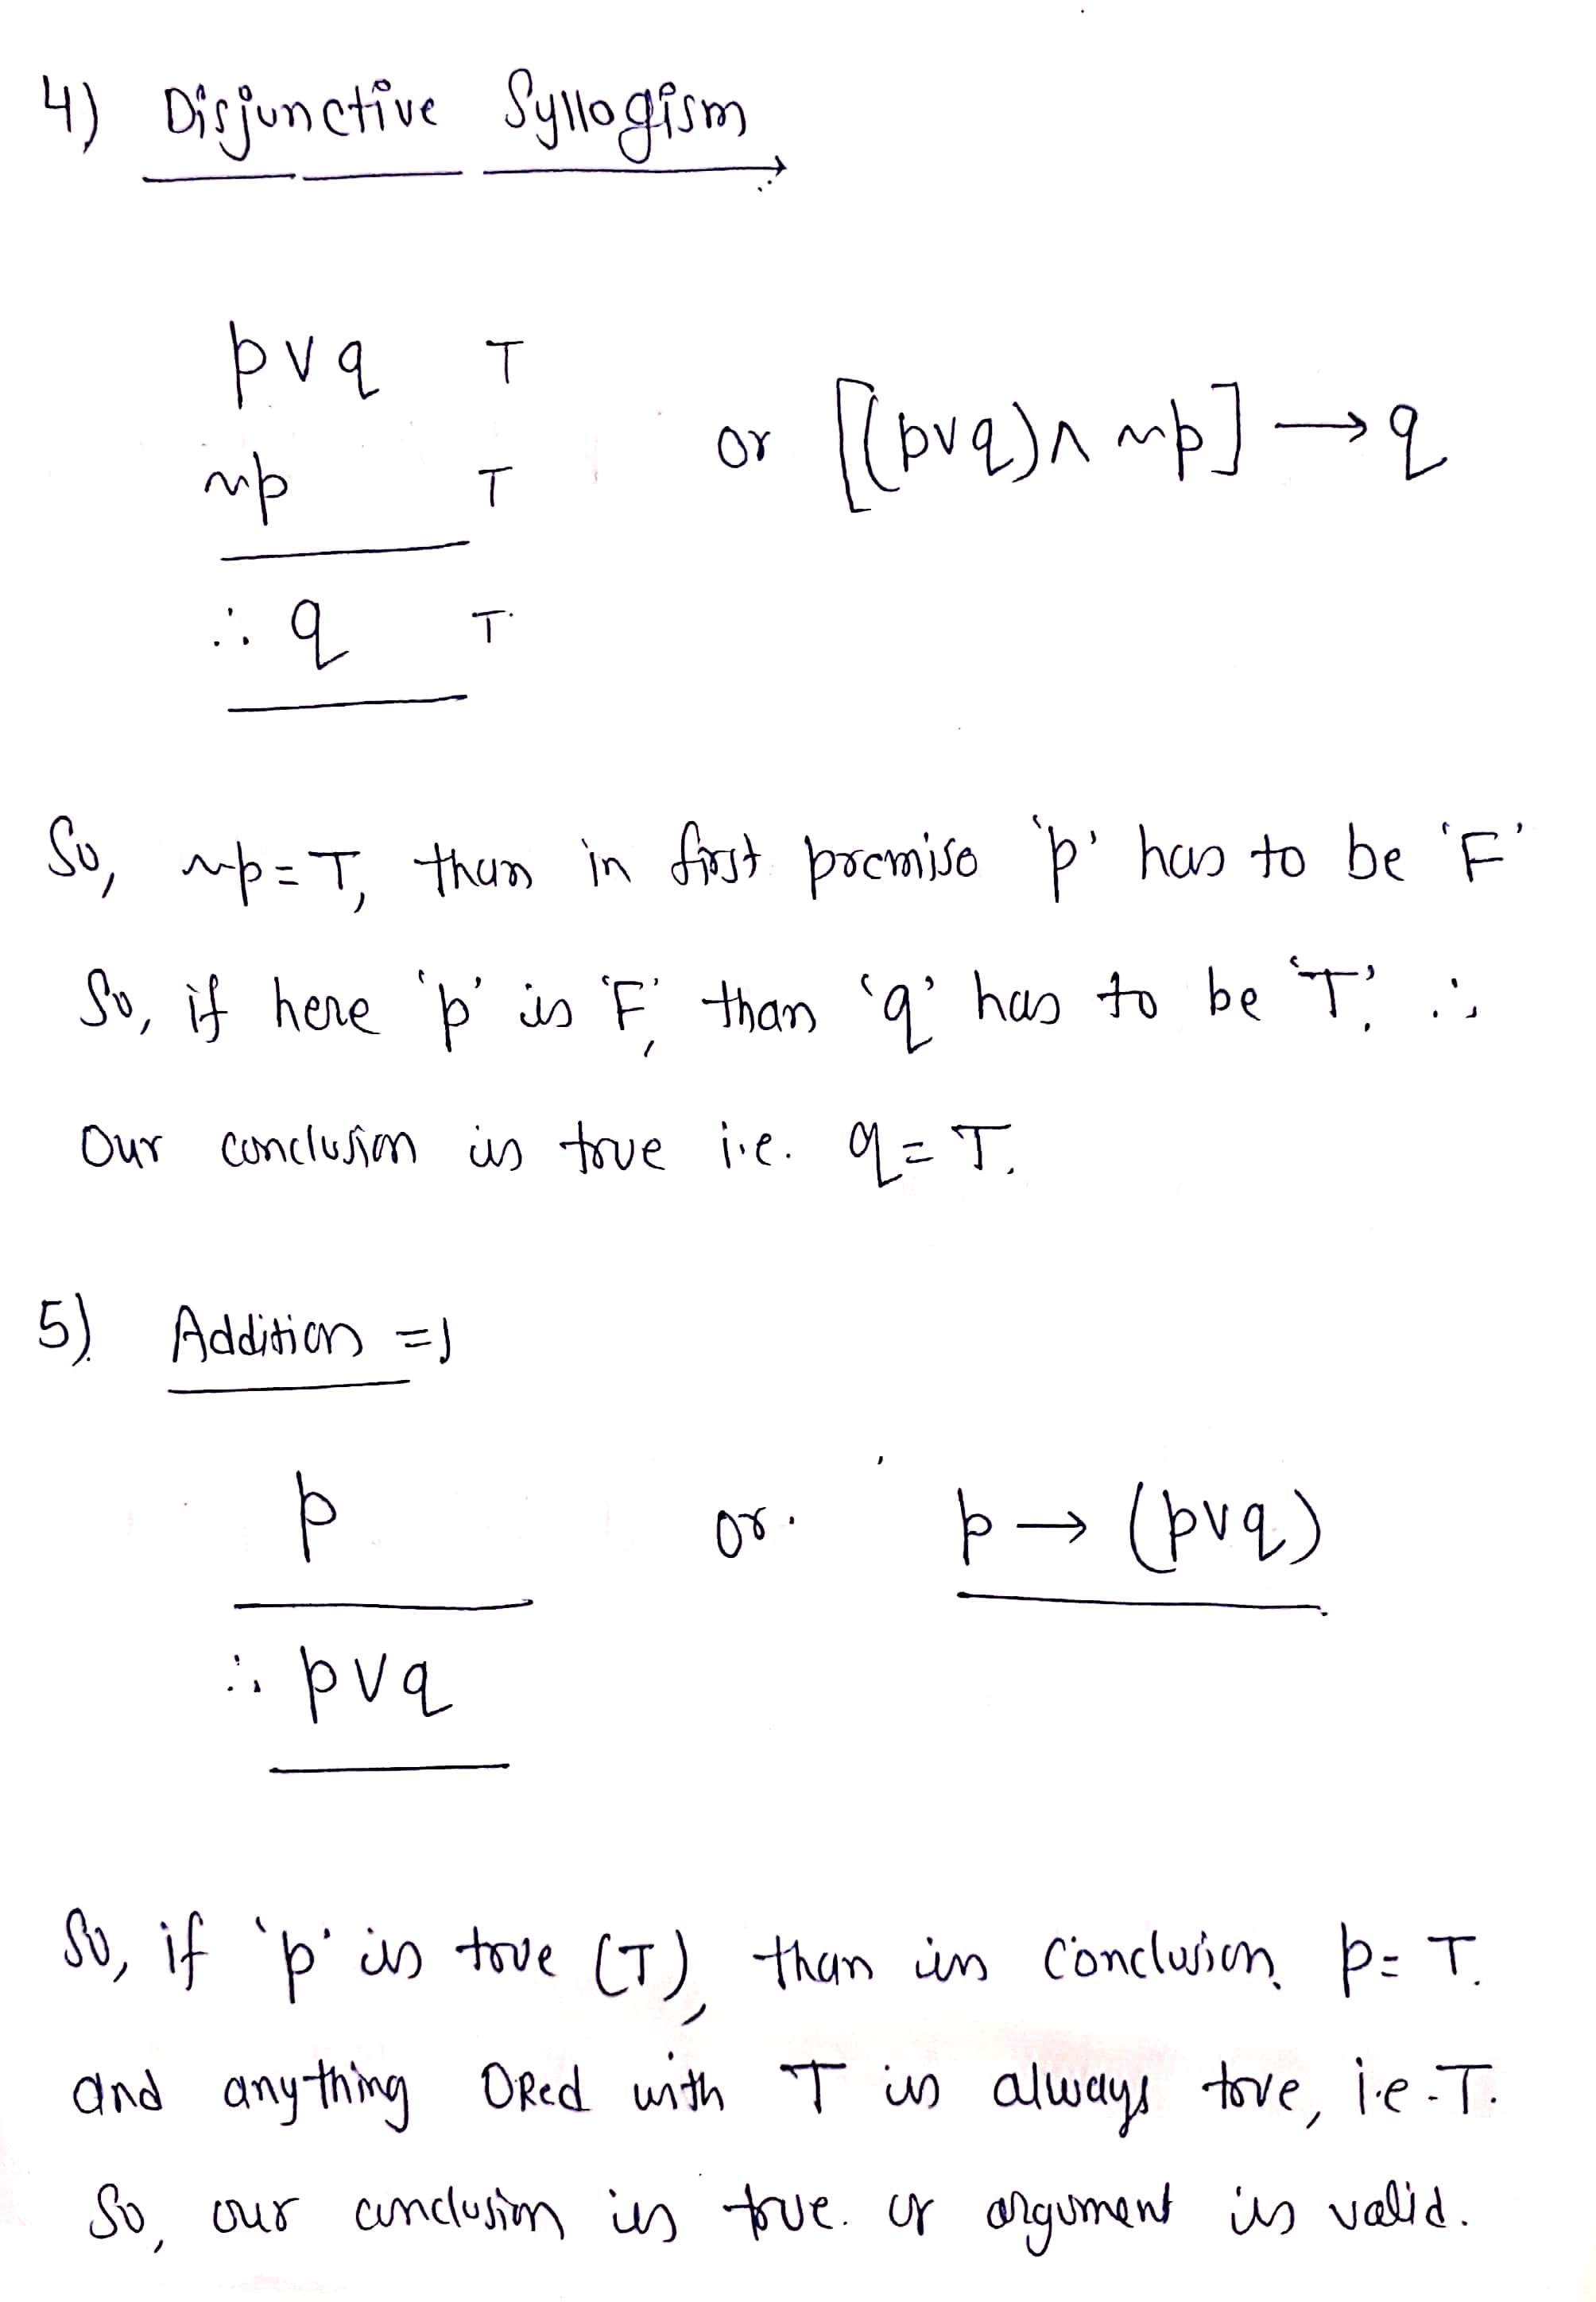 4) Disjunctive Syllogism
p∨q T
~p T
or [(p∨q)∧ ~p] → q
∴ q T.
So, ~p=T, than in first premise 'p' has to be 'F'
So, if here 'p' is 'F', than 'q' has to be 'T'. ∴
Our conclusion is true i.e. q=T.
5). Addition =)
p or. p → (p∨q)
∴ p∨q
So, if 'p' is true (T), than in conclusion p= T.
and anything ORed with T is always true, i.e.T.
So, our conclusion is true. or argument is valid.